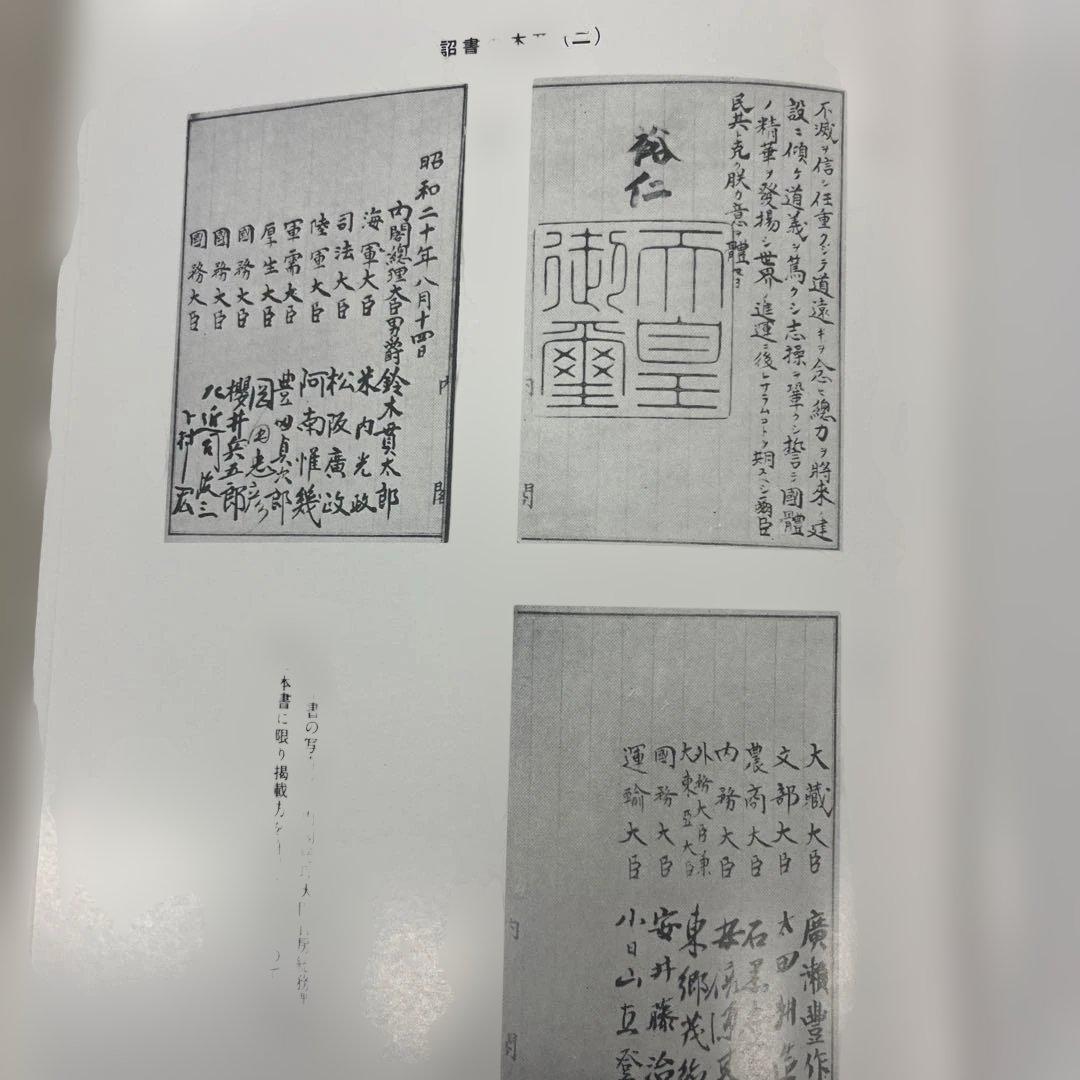 詔書 本 (二)
不滅ヲ信シ任重クシテ道遠キヲ念ヒ總力ヲ將來ノ建
設ニ傾ケ道義ヲ篤クシ志操ヲ鞏クシ誓テ國體
ノ精華ヲ發揚シ世界ノ進運ニ後レサラムコトヲ期スヘシ爾臣
民其レ克ク朕カ意ヲ體セヨ
裕仁
天皇
御璽
内
閣
昭和二十年八月十四日
内閣總理大臣男爵 鈴木貫太郎
海軍大臣 米内光政
司法大臣 松阪廣政
陸軍大臣 阿南惟幾
軍需大臣 豊田貞次郎
厚生大臣 岡田忠彦
國務大臣 櫻井兵五郎
國務大臣 左近司政三
國務大臣 下村宏
内
閣
大藏大臣 廣瀬豐作
文部大臣 太田耕造
農商大臣 石黒
内務大臣 安倍源基
外務大臣兼
大東亞大臣 東郷茂徳
國務大臣 安井藤治
運輸大臣 小日山直登
内
閣
書の写
本書に限り掲載方を